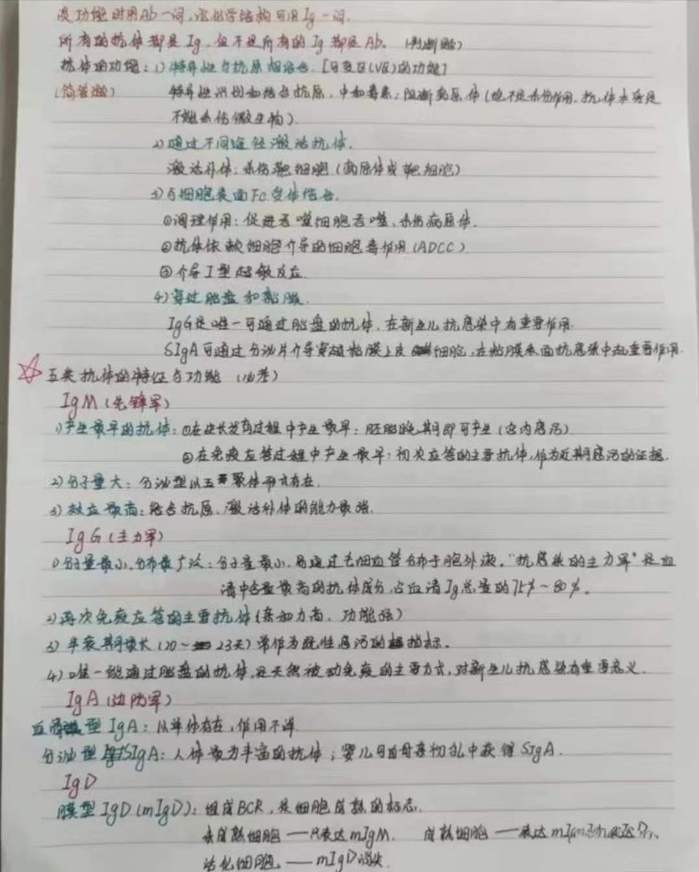 谈功能时用Ab一词,谈化学结构可用Ig一词.
所有的抗体都是Ig,但不是所有的Ig都是Ab. (判断题)
抗体的功能: 1)特异性与抗原相结合.[V区(VR)的功能]
(简答题) 特异性识别和结合抗原,中和毒素;阻断病原体(但不是杀伤作用,抗体本身是
不能杀伤微生物)
2)通过不同途径激活抗体.
激活补体:杀伤靶细胞(病原体或靶细胞)
3)与细胞表面Fc受体结合.
①调理作用:促进吞噬细胞吞噬,杀伤病原体.
②抗体依赖细胞介导的细胞毒作用(ADCC)
③介导I型超敏反应
4)穿过胎盘和黏膜.
IgG是唯一可通过胎盘的抗体,在新生儿抗感染中有重要作用.
SIgA可通过分泌片介导穿越粘膜上皮细胞,在粘膜表面抗感染中起重要作用.
五类抗体的特征与功能 (必考)
IgM (先锋军)
1)产生最早的抗体:①在生长发育过程中产生最早:胚胎晚期即可产生(宫内感污)
②在免疫应答过程中产生最早:初次应答的主要抗体,作为近期感污的证据.
2)分子量大:分泌型以五聚体形式存在.
3)效应最高:结合抗原、激活补体的能力最强.
IgG (主力军)
1)分子量最小,分布最广泛:分子量最小,易通过毛细血管分布于胞外液,"抗感染的主力军"是血
清中含量最高的抗体成分,占血清Ig总量的75%~80%.
2)再次免疫应答的主要抗体(亲和力高,功能强)
3)半衰期最长(20~23天)常作为既往感污的指标.
4)唯一能通过胎盘的抗体,是天然被动免疫的主要方式,对新生儿抗感染有重要意义.
IgA (边防军)
血清型IgA:以单体存在,作用不详
分泌型SIgA:人体最为丰富的抗体;婴儿可自母亲初乳中获得SIgA.
IgD
膜型IgD(mIgD):组成BCR,是细胞成熟的标志.
未成熟细胞——只表达mIgM. 成熟细胞——表达
活化细胞——mIgD消失.